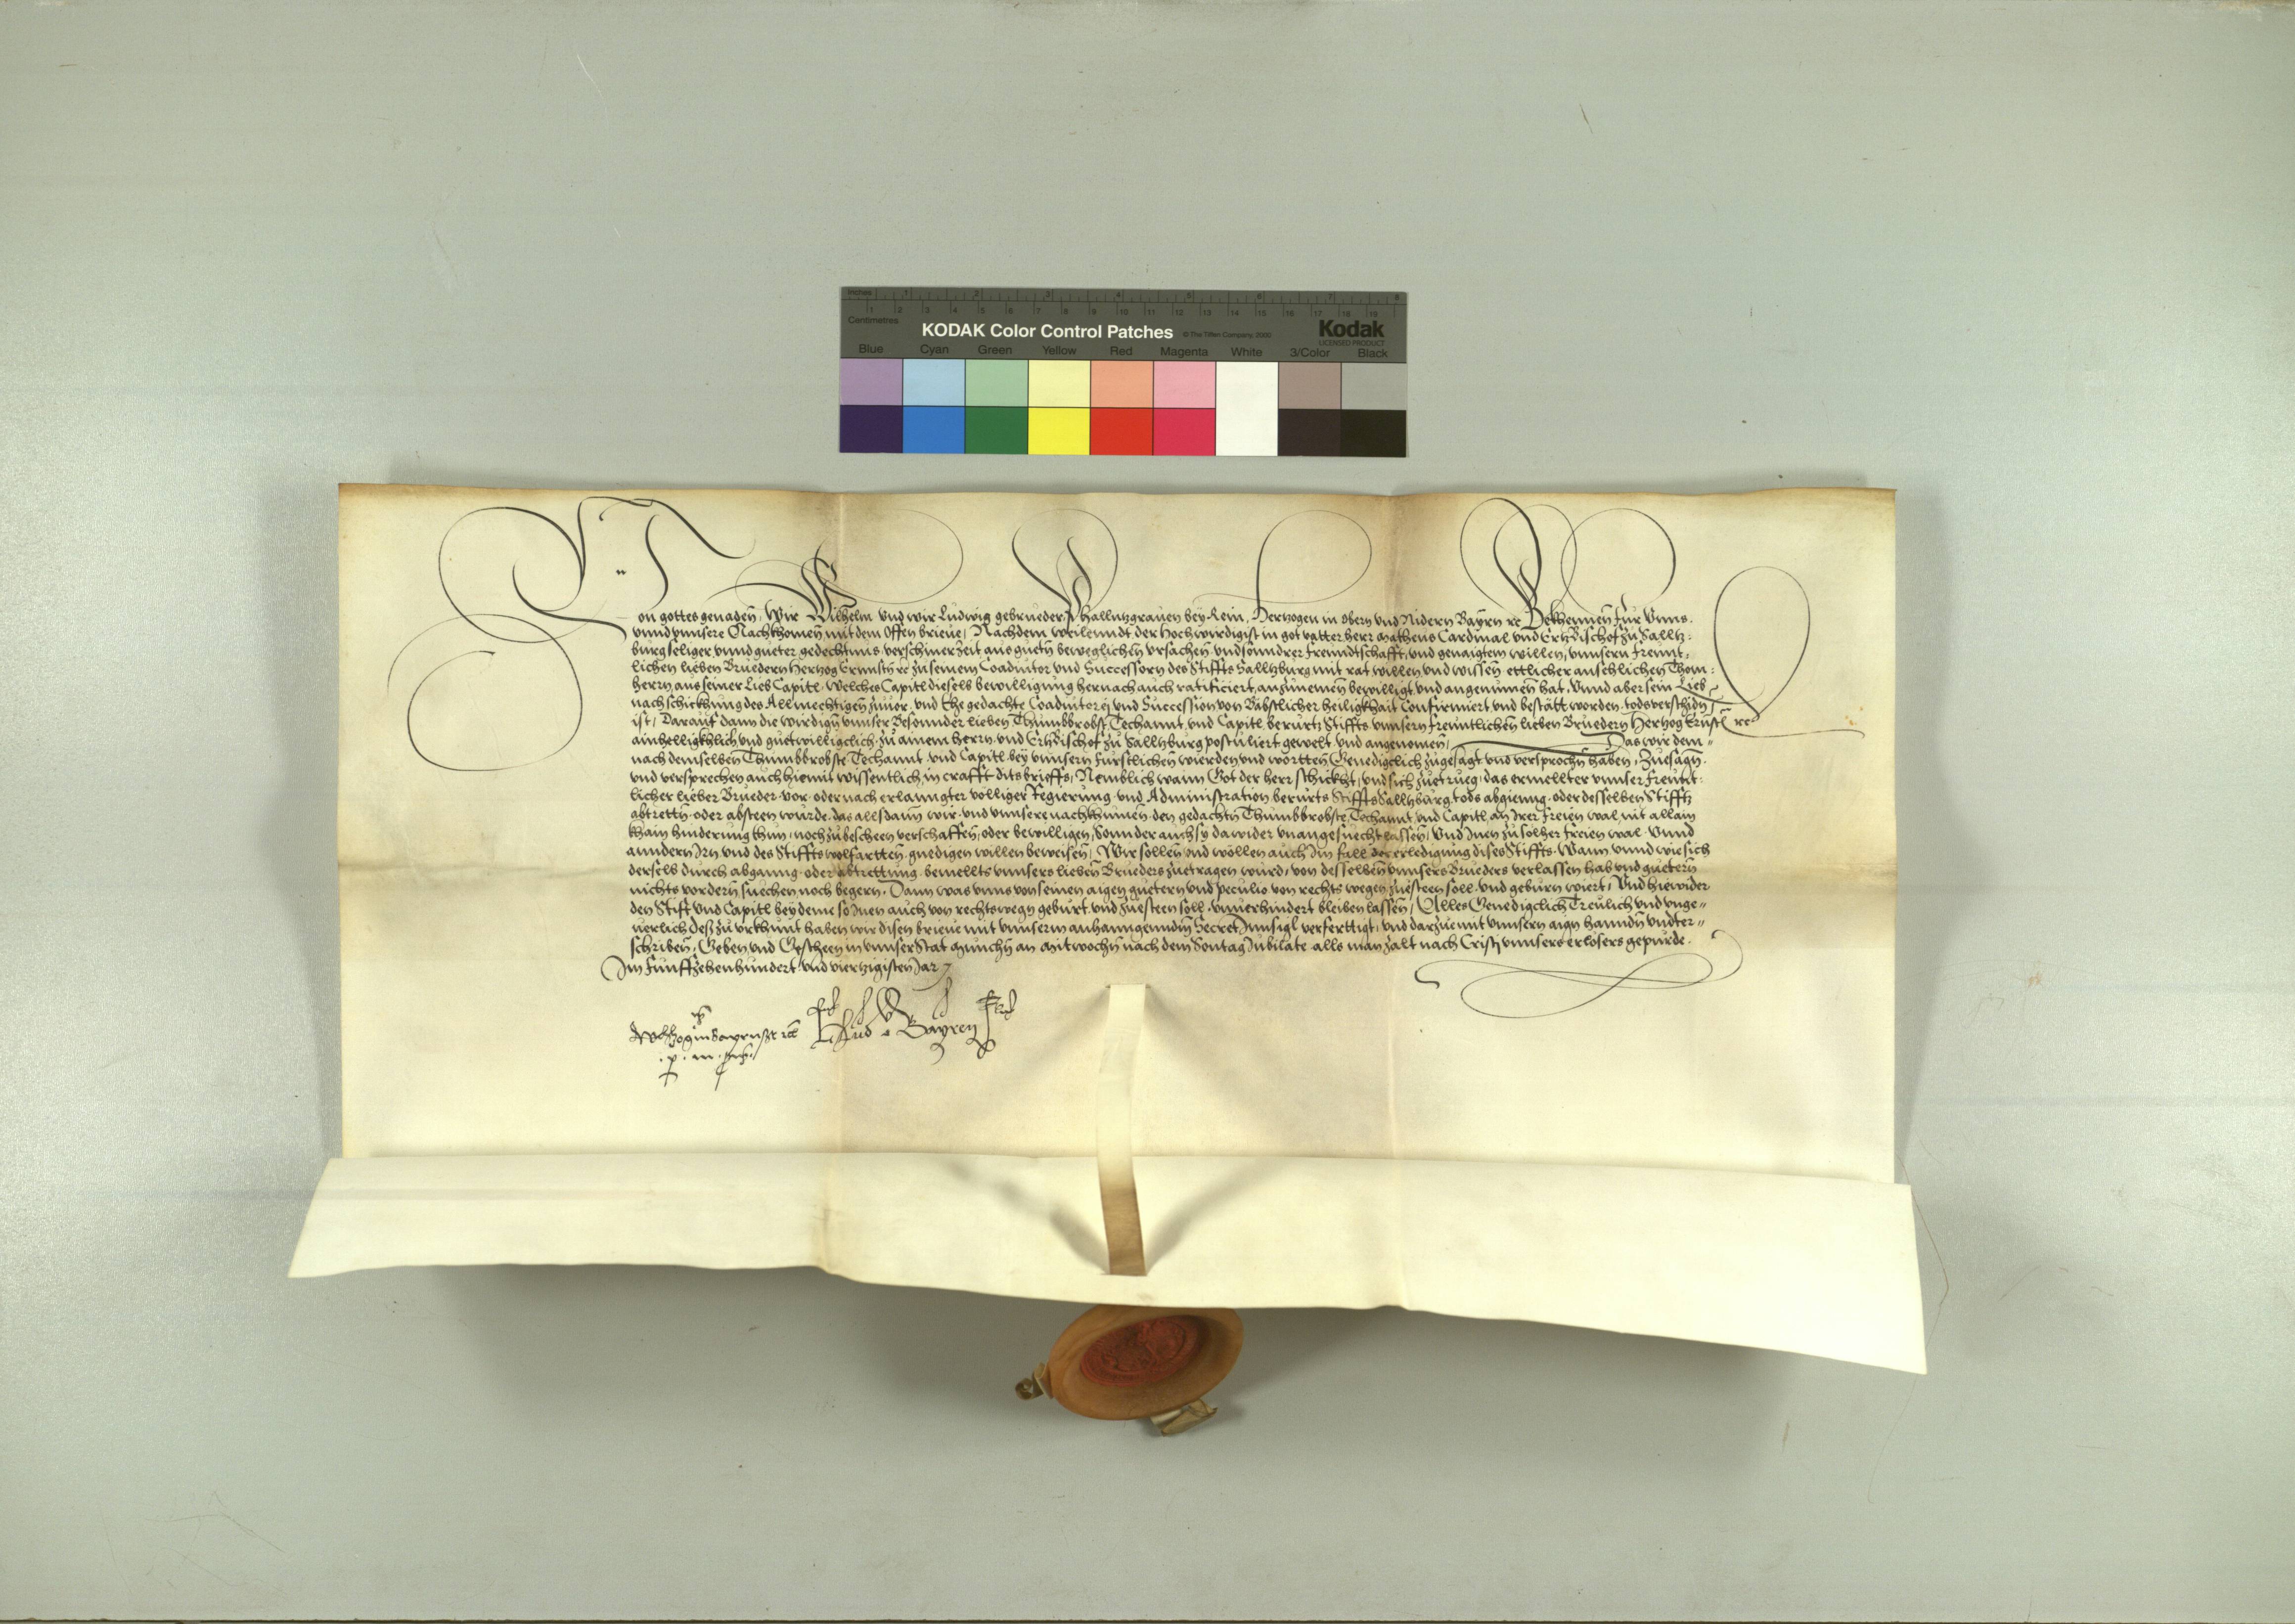 Inches 1 2 3 4 5 6 7 8
1 2 3 4 5 6 7 8 9 10 11 12 13 14 15 16 17 18 19
Centimetres
KODAK Color Control Patches © The Tiffen Company, 2000 Kodak
LICENSED PRODUCT
Blue Cyan Green Yellow Red Magenta White 3/Color Black
Von gottes genaden, Wir Wilhelm und wir Ludwig gebrueder, Phallnntzgrauen bey Rein, Hertzogen in obern und Nidern Bayrn rc Bekhennen fur Unns.
vnnd vnnsere Nachkhomen mit dem offen brieue, Nachdem weilenndt der Hochwirdigist in got vatter herr Matheus Cardinal vnd Ertzbischof zu Salltz:
burg seliger vnnd gueter gedechtnus, verschiner zeit aus gueten beweglichen vrsachen vnd sonndrer freundtschafft, vnd genaigtem willen, vnnsern freunt:
lichen lieben Bruedern Hertzog Ernnsten rc zu seinem Coadiutor vnd Successorn des Stiffts Salltzburg mit rat willen vnd wissen ettlicher ansehlichen Thom:
herrn aus seiner Lieb Capitl, welches Capitl diesels bewilligung hernach auch ratificiert, anzunemen bewilligt, vnd angenumen hat, Vnnd aber sein Lieb
nach schickhung des Allmechtigen zuuor, vnd Ehe gedachte Coadiutorey vnd Succession von Bäbstlicher heiligkhait Confirmiert vnd bestätt worden, tods verschiden
ist, Darauf dann die wirdigen vnnser Besonnder lieben Thumbbrobst, Techannt, vnd Capitl berürts Stiffts vnnsern freuntlichen lieben Bruedern Hertzog Ernst rc
ainhelligkhlich vnd guetwilligclich zu ainem herrn vnd Ertzbischof zu Salltzburg postuliert gewelt vnd angenomen, Das wir dem"
nach demselben Thumbbrobste Techannt vnd Capitl bey vnnsern Furstlichen wierden vnd wortten Genedigclich zugesagt vnd versprochen haben, Zuesagen.
vnd versprechen auch hiemit wissentlich in crafft dits brieffs, Nemblich wann Got der herr schickht, vnd sich zuetrueg, das ermellter vnnser freunt:
licher lieber Brueder vor oder nach erlanngter volliger Regierung vnd Administration berurts Stiffts Salltzburg tods abgieng, oder desselben Stiffts
abtretten oder absteen wurde, das allsdann wir vnd vnnsere nachkhumen den gedachten Thumbbrobste, Techannt vnd Capitl an Irer freien wal, nit allain
khain hinderung thun, noch zubescheen verschaffen, oder bewilligen, Sonnder auch sy dawider vnangesuecht lassen, Vnd Inen zu solher freien wal Vnnd
anndern Irn vnd des Stiffts wolfartten, gnedigen willen beweisen, Wir sollen vnd wöllen auch Im fall der erledigung dises Stiffts, Wann vnnd wie sich
derselb durch abganng oder abtrettung bemellts vnnsers lieben Brueders zuetragen wurd, von desselben vnnsers Brueders verlassen hab vnd guetern
nichts vordern suechen noch begern, Dann was vnns von seinen aigen guetern vnd peculio von rechts wegen zuesteen soll, vnd geburn wiert, Vnd hiewider
den Stift vnd Capitl bey deme so Inen auch von rechts wegen geburt, vnd zuesteen soll, vnuerhindert bleiben lassen, Alles Genedigclich Treulich vnd vnge"
uerlich Deß zu vrkhunt haben wir disen brieue mit vnnserm anhanngenndem Secret Innsigl verferttigt, vnd darzue mit vnnsern aigen hannden vndter"
schriben, Geben vnd Gescheen in vnnser Stat Munchen an Mitwochen nach dem Sontag Jubilate, alls man zalt nach Cristi vnnsers erlösers gepurde,
Im Funffzehenhundert vnd viertzigisten Jar
Lud Bayren